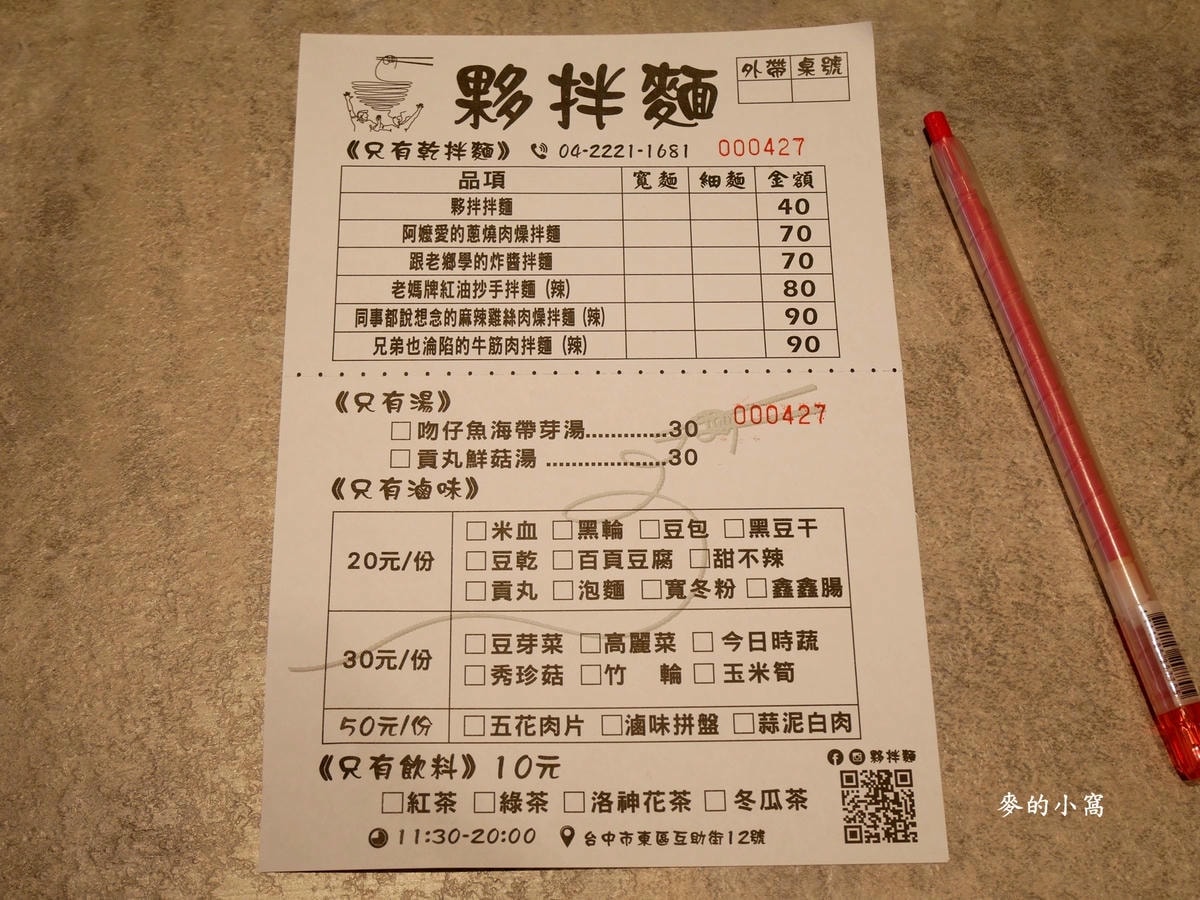 夥拌麵
外帶 桌號
《只有乾拌麵》 04-2221-1681 000427
品項 寬麵 細麵 金額
夥拌拌麵 40
阿嬤愛的蔥燒肉燥拌麵 70
跟老鄉學的炸醬拌麵 70
老媽牌紅油抄手拌麵 (辣) 80
同事都說想念的麻辣雞絲肉燥拌麵 (辣) 90
兄弟也淪陷的牛筋肉拌麵 (辣) 90
《只有湯》 000427
□吻仔魚海帶芽湯.............30
□貢丸鮮菇湯 ...................30
《只有滷味》
20元/份
□米血 □黑輪 □豆包 □黑豆干
□豆乾 □百頁豆腐 □甜不辣
□貢丸 □泡麵 □寬冬粉 □鑫鑫腸
30元/份
□豆芽菜 □高麗菜 □今日時蔬
□秀珍菇 □竹 輪 □玉米筍
50元/份 □五花肉片 □滷味拼盤 □蒜泥白肉
《只有飲料》10元
夥拌麵
□紅茶 □綠茶 □洛神花茶 □冬瓜茶
11:30-20:00 台中市東區互助街12號
麥的小窩